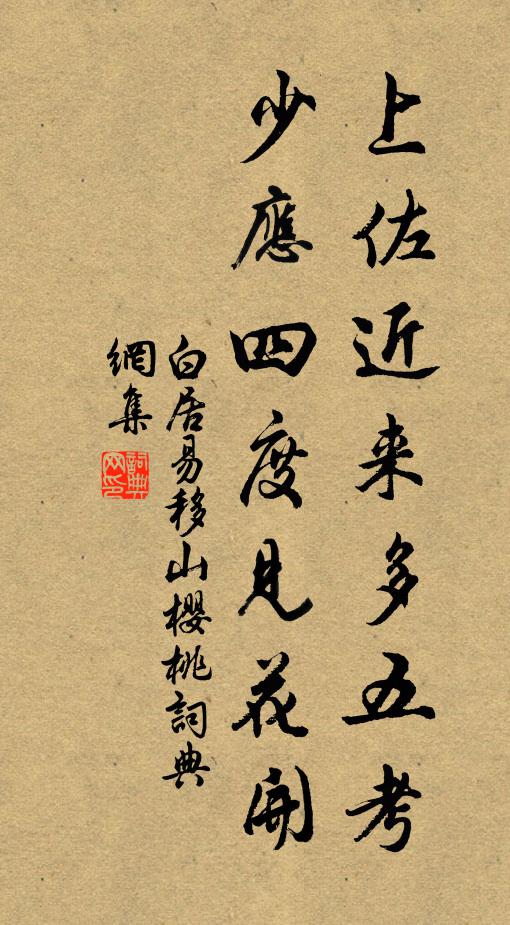 上佐近来多五考
少應四度見花開
白居易移山櫻桃詞典
網集
詞典
网印